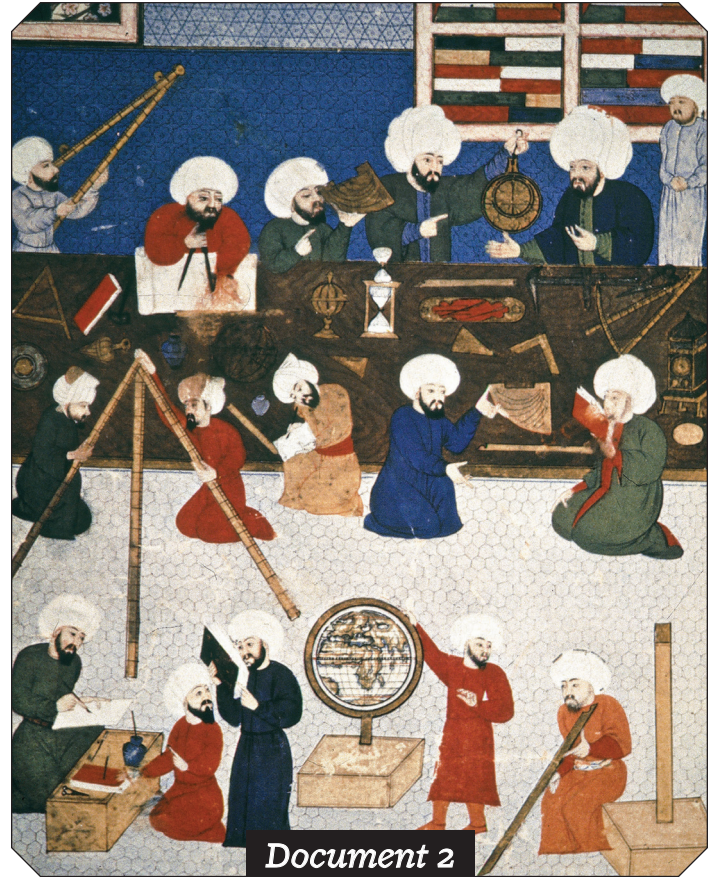 Document 2